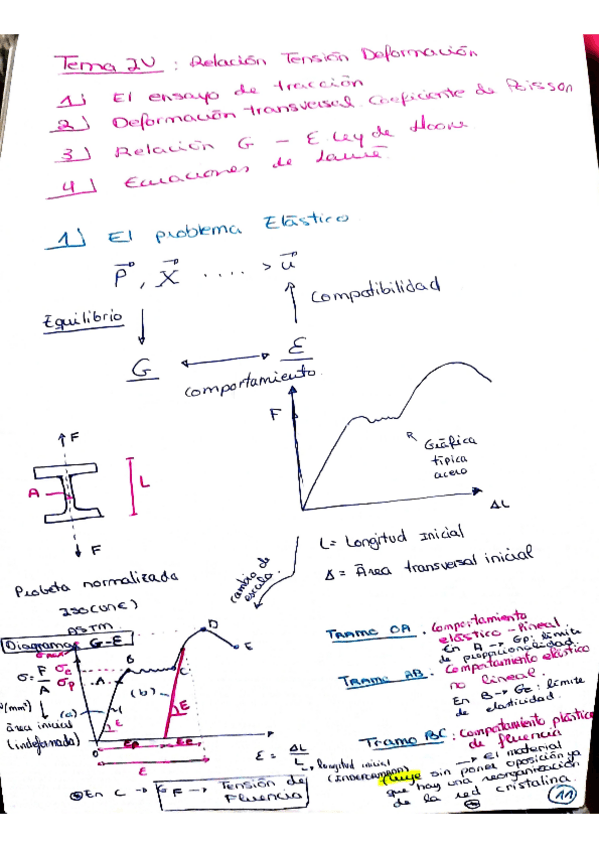 Tema IV : Relación Tensión Deformación
1) El ensayo de tracción
2) Deformación transversal. Coeficiente de Poisson
3) Relación G - E Ley de Hooke
4) Ecuaciones de Lamé.
1) El problema Elástico
P, X ....> u
Equilibrio
Compatibilidad
G ↔ E
comportamiento.
F
Gráfica
típica
acero
ΔL
F
A
L
F
L = Longitud Inicial
A = Área transversal inicial
cambio de
escala
Probeta normalizada
ISO (UNE)
ASTM
Diagrama G-E
σ = F/A
σe
σp
(N/mm²)
área inicial
(indeformada)
(a)
(b)
A
B
C
D
E
O
E
E
Ep
Ee
E
ε = ΔL/L
Longitud inicial
En C → GF → Tensión de
Fluencia
Tramo OA . Comportamiento
elástico - lineal
En A → Gp: límite
de proporcionalidad.
Tramo AB . Comportamiento elástico
no lineal.
En B → GE : límite
de elasticidad.
Tramo BC : Comportamiento plástico
de fluencia
→ El material
fluye sin poner oposición ya
que hay una reorganización
de la red cristalina.
11